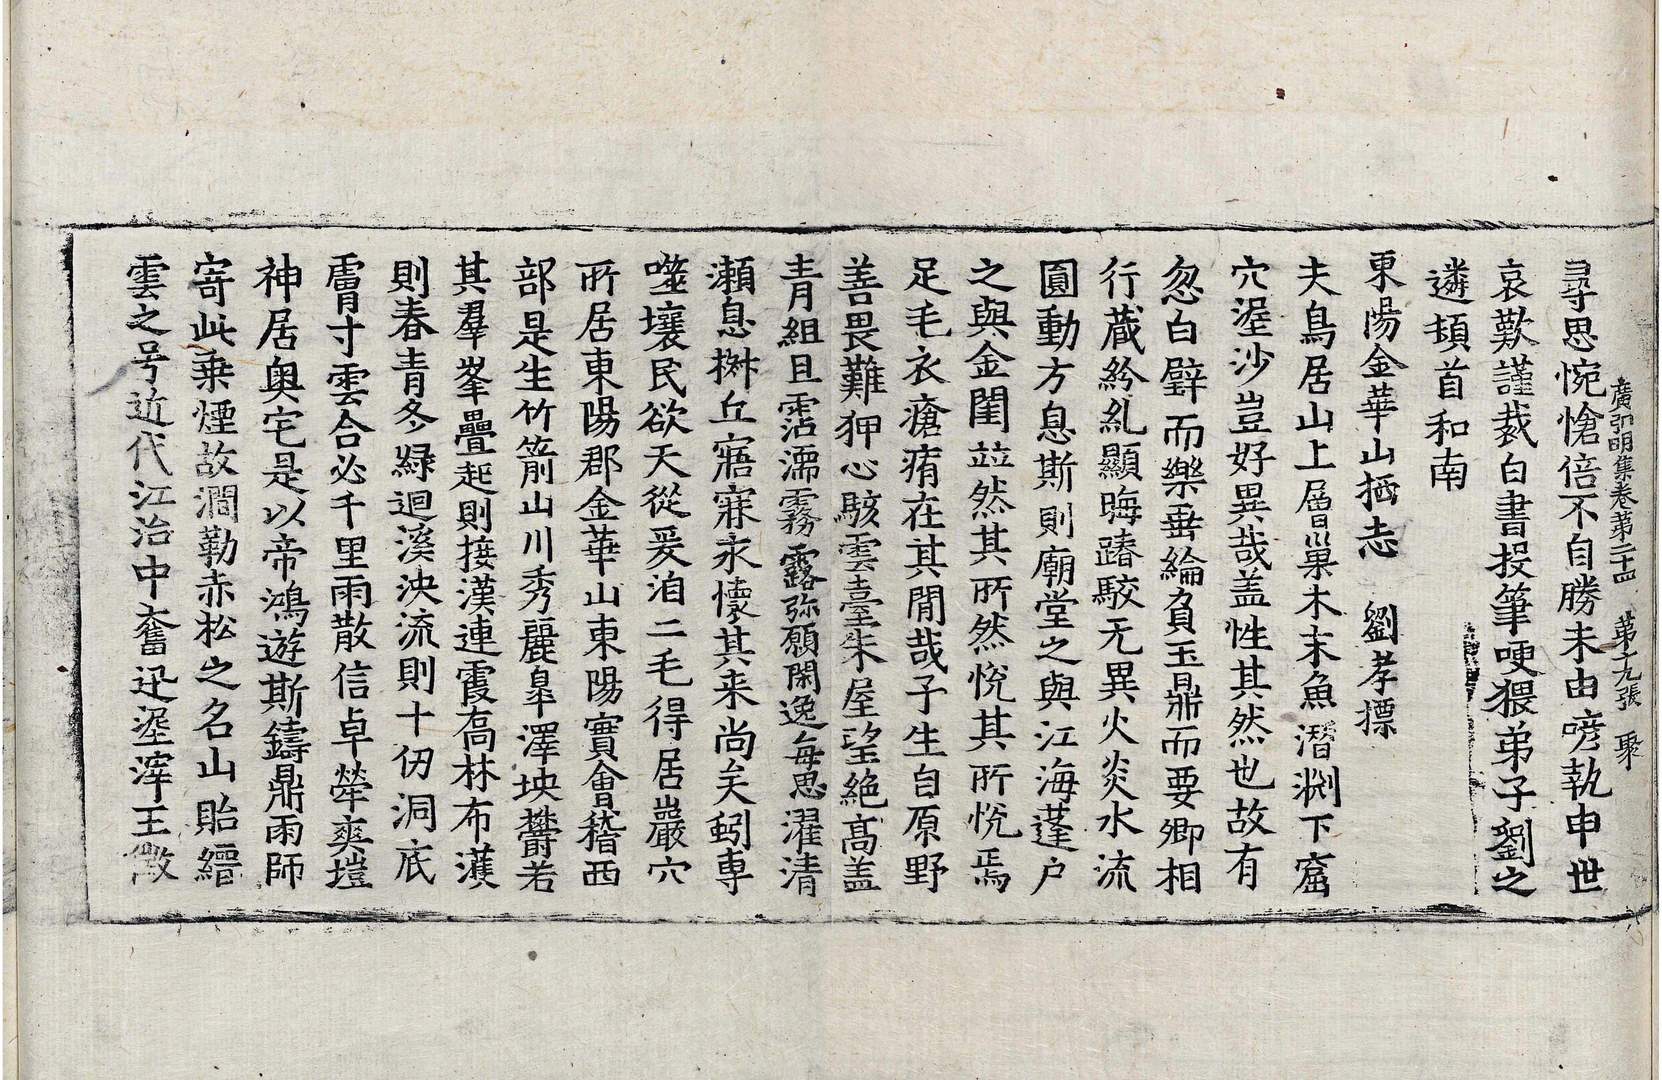 廣弘明集卷第二十四　第十九張　聚
尋思惋愴倍不自勝未由嗙執申世
哀歎謹裁白書投筆哽猥弟子劉之
遴頓首和南
東陽金華山栖志　劉孝摽
夫鳥居山上層巢木末魚潛渕下窟
穴渥沙豈好異哉盖性其然也故有
忽白璧而樂垂綸負玉鼎而要卿相
行藏紛糺顯晦踳駮无異火炎水流
圓動方息斯則廟堂之與江海蓬户
之與金閨並然其所然悅其所悅焉
足毛衣瘡痏在其閒哉子生自原野
善畏難狎心駭雲臺朱屋望絶髙盖
青組且霑濡霧露弥願閑逸每思濯清
瀬息椒丘寤寐永懷其来尚矣蚓専
噬壤民欲天從爰洎二毛得居巖穴
所居東陽郡金華山東陽實會稽西
部是生竹箭山川秀麗皐澤坱欝若
其羣峯疊起則接漢連霞髙林布濩
則春青冬綠迴溪泱流則十仞洞底
膚寸雲合必千里雨散信卓犖爽塏
神居奥宅是以帝鴻遊斯鑄鼎雨師
寄此乗煙故澗勒赤松之名山貽縉
雲之号近代江治中奮迅遲滓王徵